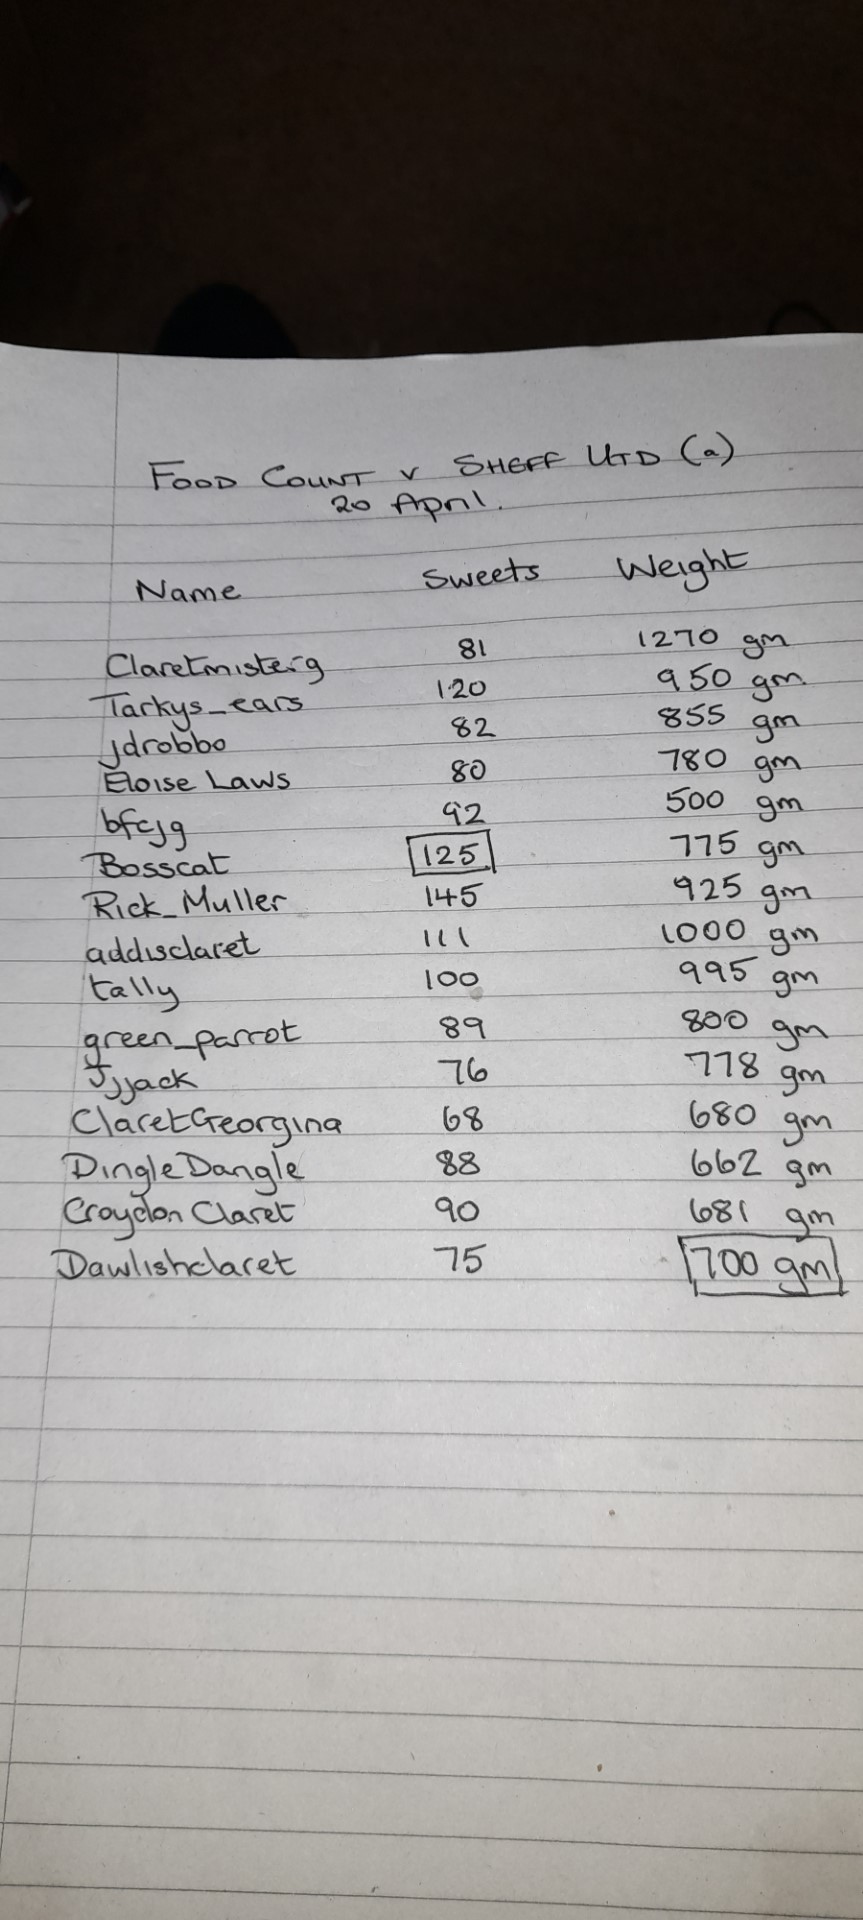 FOOD COUNT v SHEFF UTD (a)
20 April.
Name Sweets Weight
Claretmisterg 81 1270 gm
Tarkys_ears 120 950 gm
jdrobbo 82 855 gm
Eloise Laws 80 780 gm
bfcjg 92 500 gm
Bosscat 125 775 gm
Rick_Muller 145 925 gm
addisclaret 111 1000 gm
tally 100 995 gm
green_parrot 89 800 gm
Jjjack 76 778 gm
ClaretGeorgina 68 680 gm
DingleDangle 88 662 gm
Croydon Claret 90 681 gm
Dawlishclaret 75 700 gm